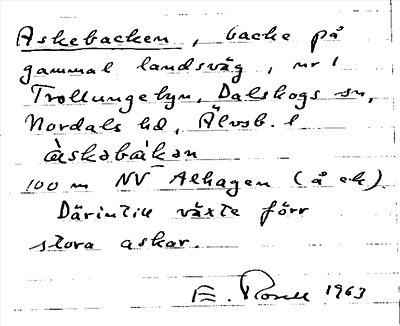 Askebacken, backe på
gammal landsväg, nr 1
Trollungebyn, Dalskogs sn,
Nordals hd, Älvsb. l
àskəbàkən
100 m NV Alhagen (å ek)
Därintill växte förr
stora askar.
E. 1963